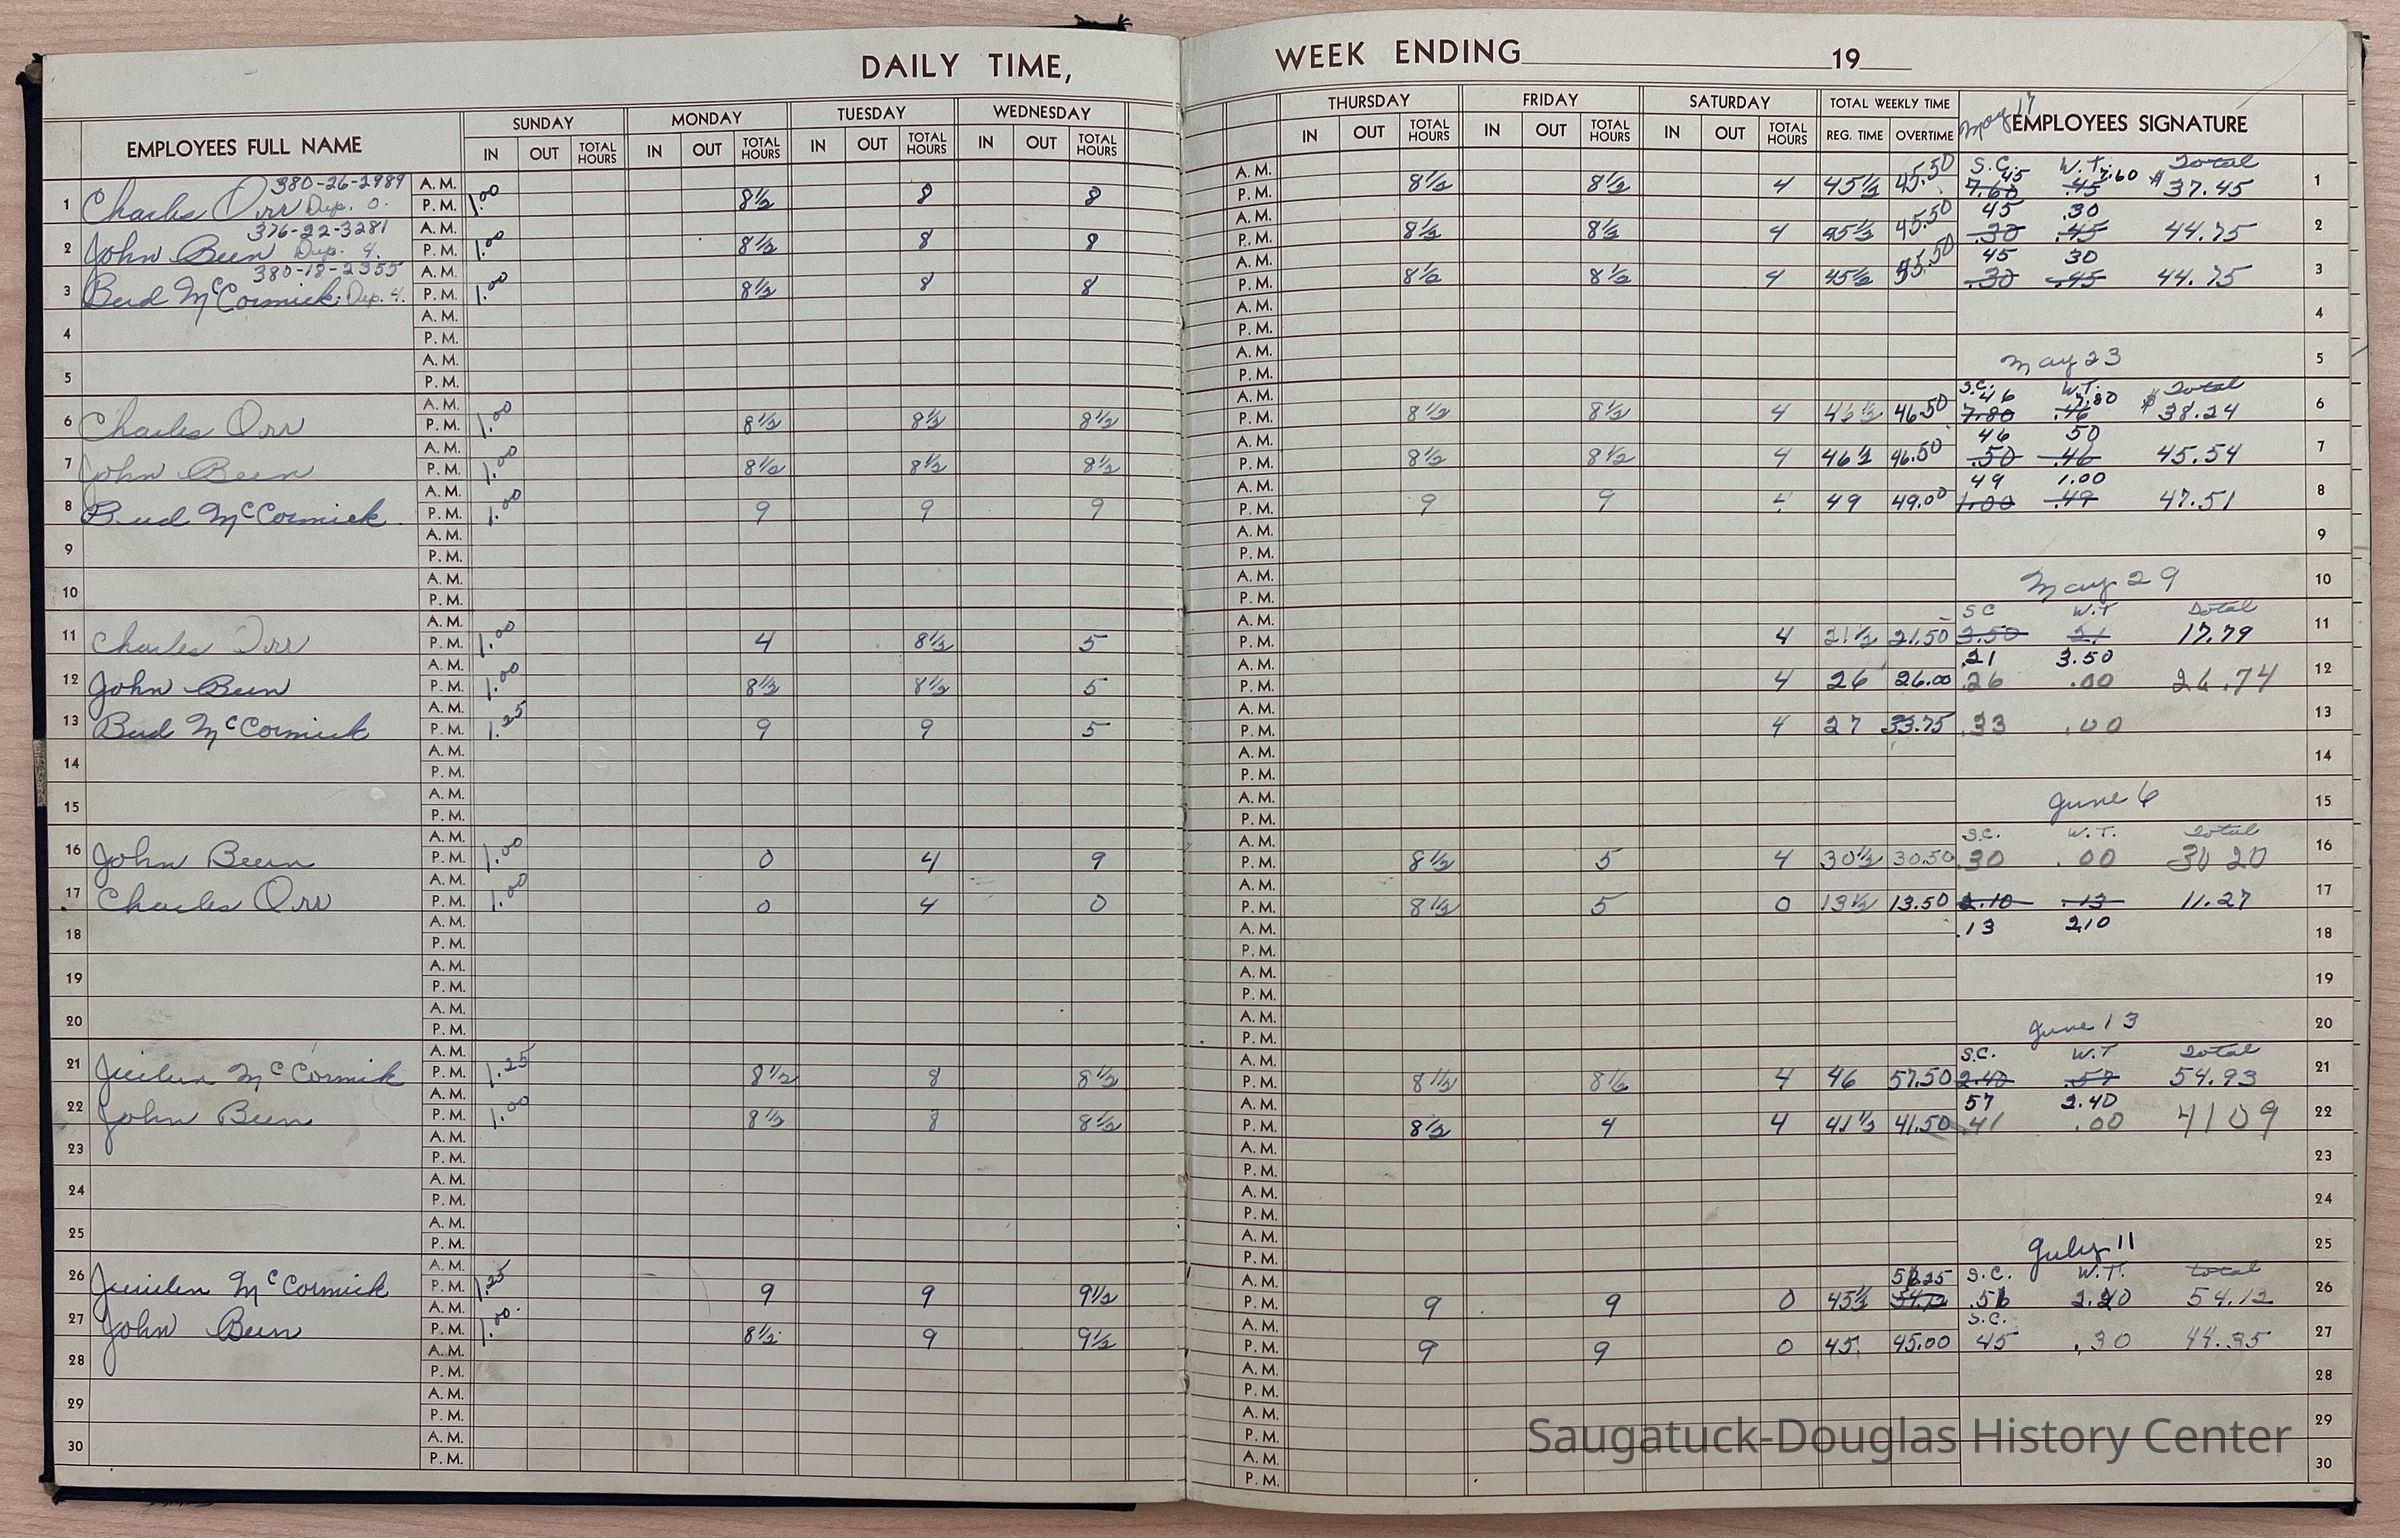 DAILY TIME, WEEK ENDING 19
May 17
EMPLOYEES FULL NAME SUNDAY MONDAY TUESDAY WEDNESDAY THURSDAY FRIDAY SATURDAY TOTAL WEEKLY TIME EMPLOYEES SIGNATURE
IN OUT TOTAL HOURS IN OUT TOTAL HOURS IN OUT TOTAL HOURS IN OUT TOTAL HOURS IN OUT TOTAL HOURS IN OUT TOTAL HOURS IN OUT TOTAL HOURS REG. TIME OVERTIME
S.C. W.T. Total
380-26-2989 A.M. A.M. 45 7.60
1 Charles Orr Dep. 0. P.M. 1.00 8½ 8 8 P.M. 8½ 8½ 4 45½ 45.50 7.60 .45 $37.45 1
376-22-3281 A.M. A.M. 45 .30
2 John Been Dep. 4. P.M. 1.00 8½ 8 8 P.M. 8½ 8½ 4 45½ 45.50 .30 .45 44.75 2
380-18-2355 A.M. A.M. 45 30
3 Bud McCormick Dep. 4. P.M. 1.00 8½ 8 8 P.M. 8½ 8½ 4 45½ 45.50 .30 .45 44.75 3
A.M. A.M.
4 P.M. P.M. 4
A.M. A.M. May 23
5 P.M. P.M. 5
S.C. W.T. Total
A.M. A.M. 46 7.80
6 Charles Orr P.M. 1.00 8½ 8½ 8½ P.M. 8½ 8½ 4 46½ 46.50 7.80 .46 $38.24 6
A.M. A.M. 46 50
7 John Been P.M. 1.00 8½ 8½ 8½ P.M. 8½ 8½ 4 46½ 46.50 .50 .46 45.54 7
A.M. A.M. 49 1.00
8 Bud McCormick P.M. 1.00 9 9 9 P.M. 9 9 4 49 49.00 1.00 .49 47.51 8
A.M. A.M.
9 P.M. P.M. 9
A.M. A.M. May 29
10 P.M. P.M. 10
A.M. A.M. S C W.T Total
11 Charles Orr P.M. 1.00 4 8½ 5 P.M. 4 21½ 21.50 3.50 21 17.79 11
A.M. A.M. .21 3.50
12 John Been P.M. 1.00 8½ 8½ 5 P.M. 4 26 26.00 .26 .00 26.74 12
A.M. A.M.
13 Bud McCormick P.M. 1.25 9 9 5 P.M. 4 27 33.75 .33 .00 13
A.M. A.M.
14 P.M. P.M. 14
A.M. A.M. June 6
15 P.M. P.M. 15
A.M. A.M. S.C. W.T. Total
16 John Been P.M. 1.00 0 4 9 P.M. 8½ 5 4 30½ 30.50 .30 .00 30 20 16
A.M. A.M.
17 Charles Orr P.M. 1.00 0 4 0 P.M. 8½ 5 0 13½ 13.50 2.10 .13 11.27 17
A.M. A.M. .13 2.10
18 P.M. P.M. 18
A.M. A.M.
19 P.M. P.M. 19
A.M. A.M. June 13
20 P.M. P.M. 20
A.M. A.M. S.C. W.T Total
21 McCormik P.M. 1.25 8½ 8 8½ P.M. 8½ 8½ 4 46 57.50 2.40 .57 54.93 21
A.M. A.M. 57 2.40
22 John Been P.M. 1.00 8½ 8 8½ P.M. 8½ 4 4 41½ 41.50 .41 .00 41 09 22
A.M. A.M.
23 P.M. P.M. 23
A.M. A.M.
24 P.M. P.M. 24
A.M. A.M. July 11
25 P.M. P.M. 25
A.M. A.M. S.C. W.T. total
26 McCormick P.M. 1.25 9 9 9½ P.M. 9 9 0 45½ 2.20 54.12 26
A.M. A.M. S.C.
27 John Been P.M. 1.00 8½ 9 9½ P.M. 9 9 0 45 45.00 45 .30 44.35 27
A.M. A.M.
28 P.M. P.M. 28
A.M. A.M.
29 P.M. P.M. 29
A.M. A.M.
30 P.M. P.M. 30
Saugatuck-Douglas History Center